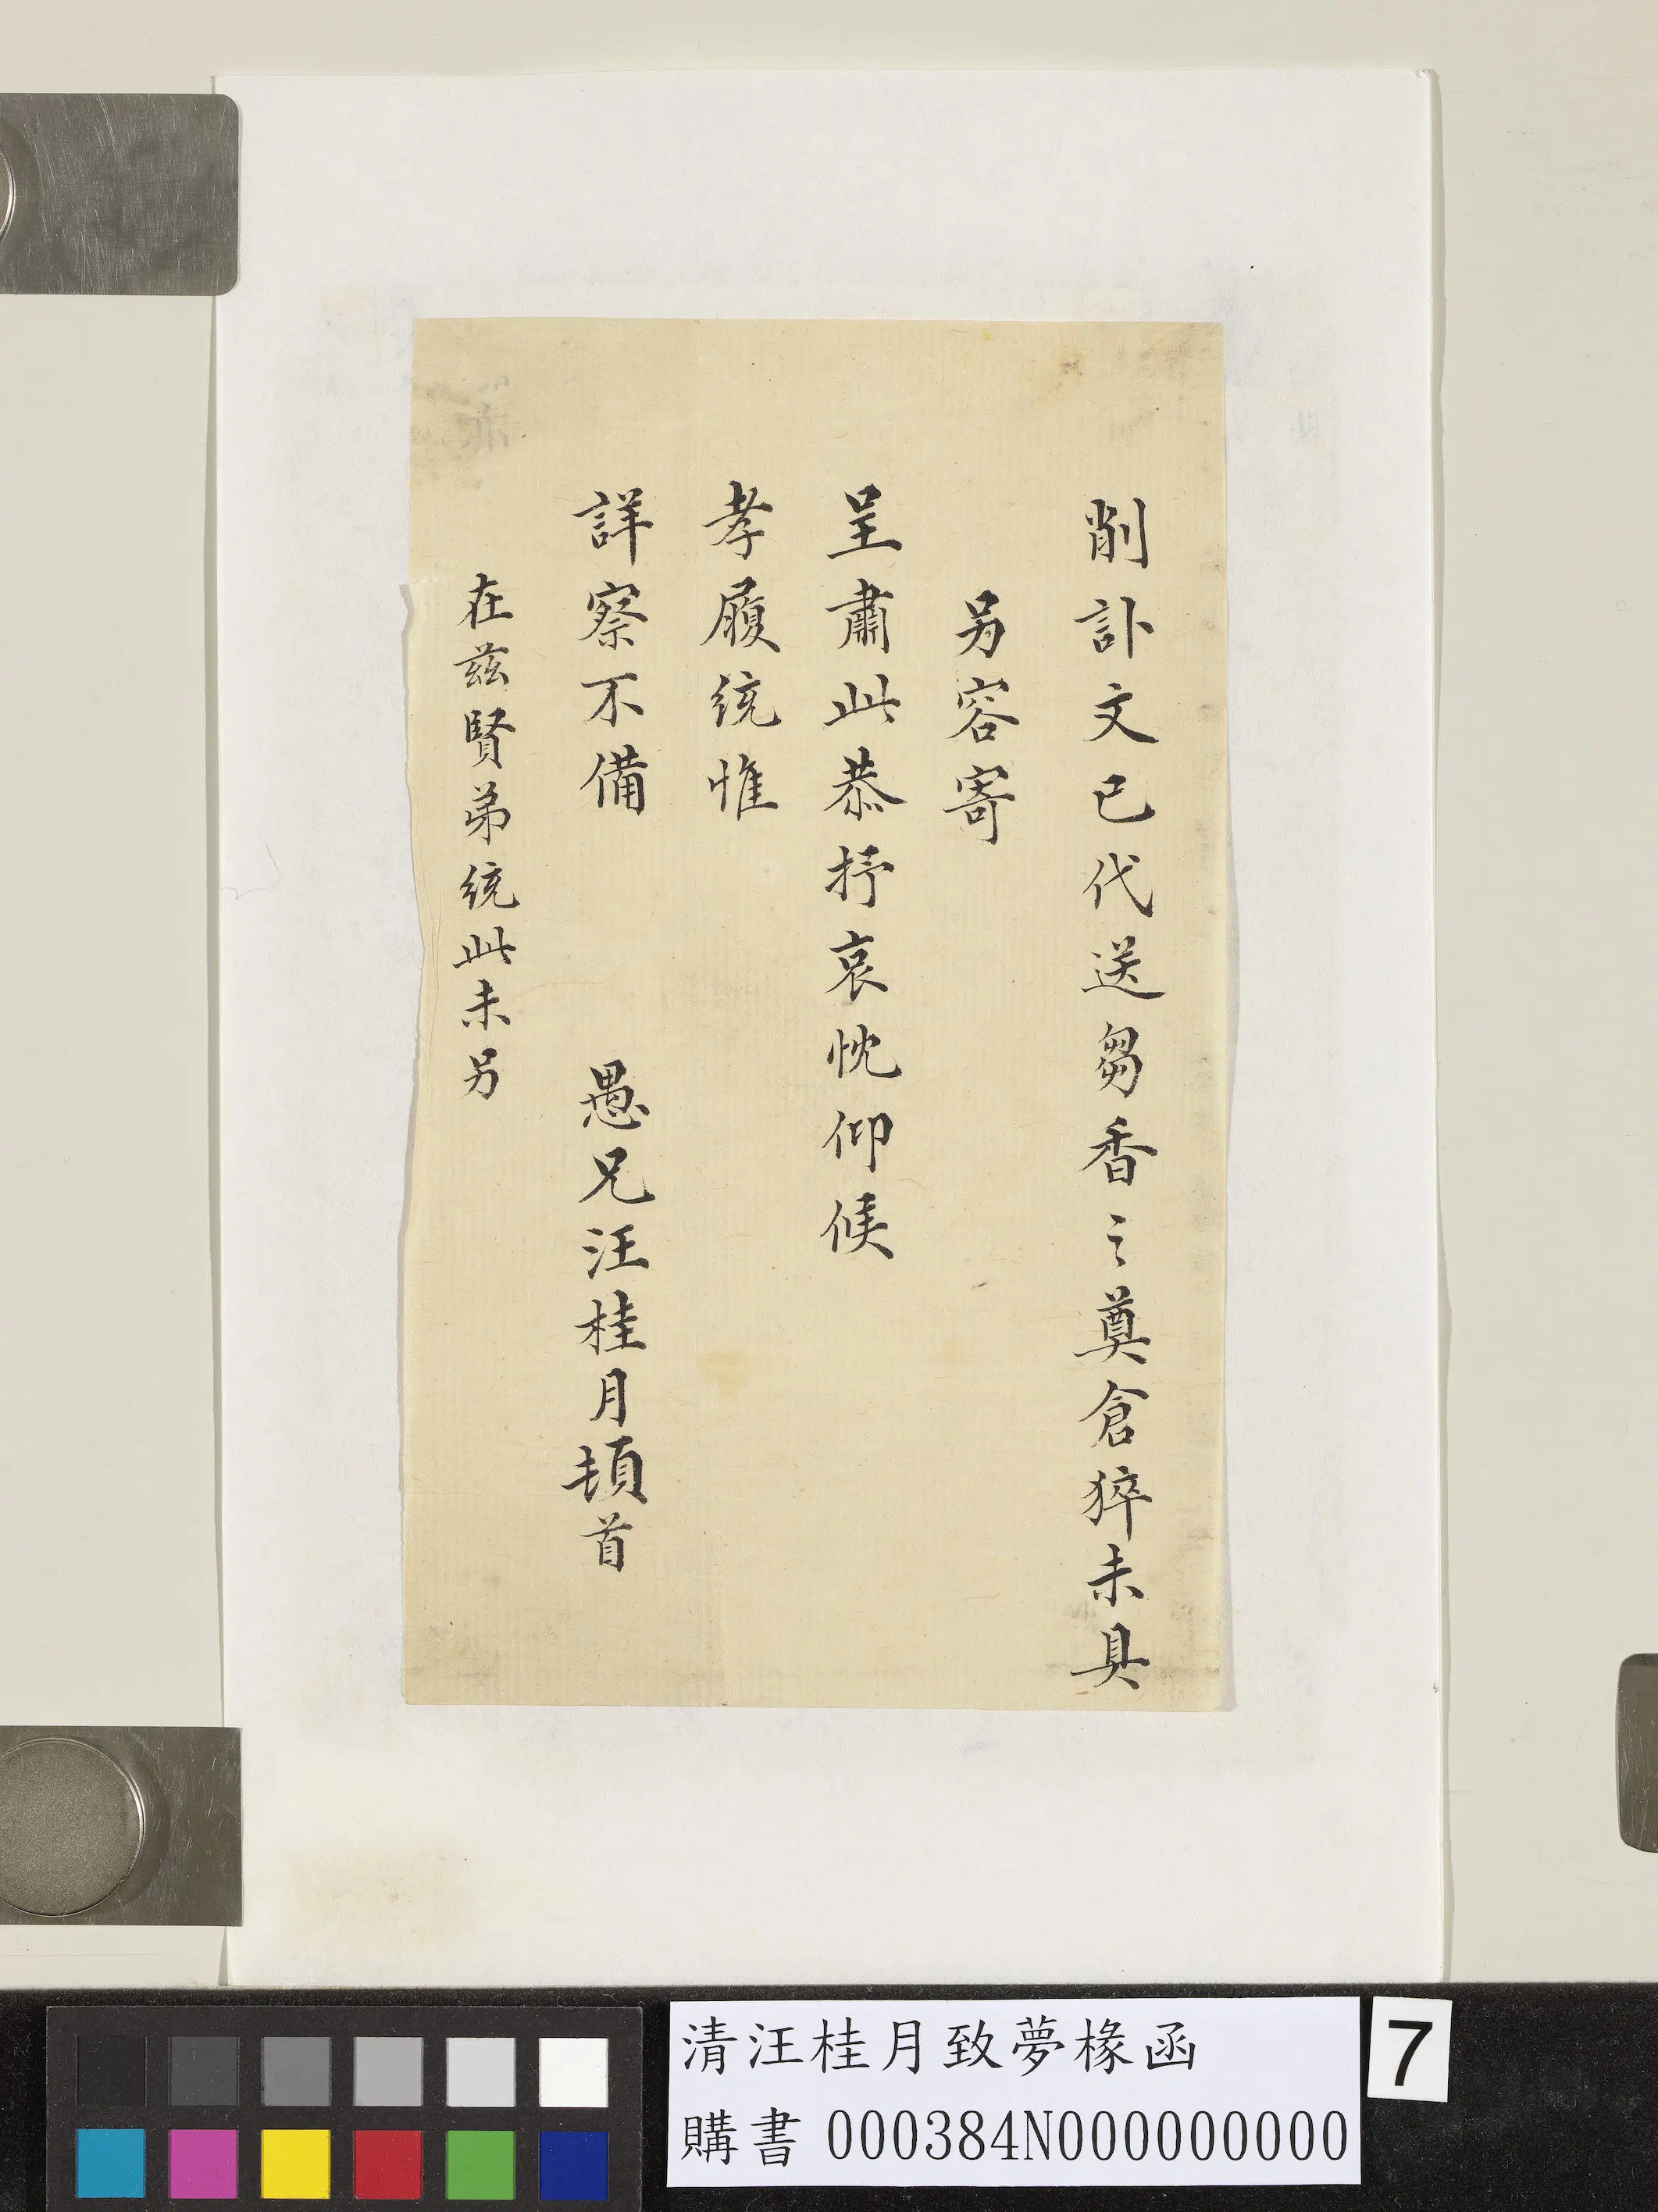 削訃文已代送芻香之奠倉猝未具
另容寄
呈肅此恭抒哀忱仰候
孝履統惟
詳察不備 愚兄汪桂月頓首
在茲賢弟統此未另
清汪桂月致夢椽函
購書 000384N000000000
7